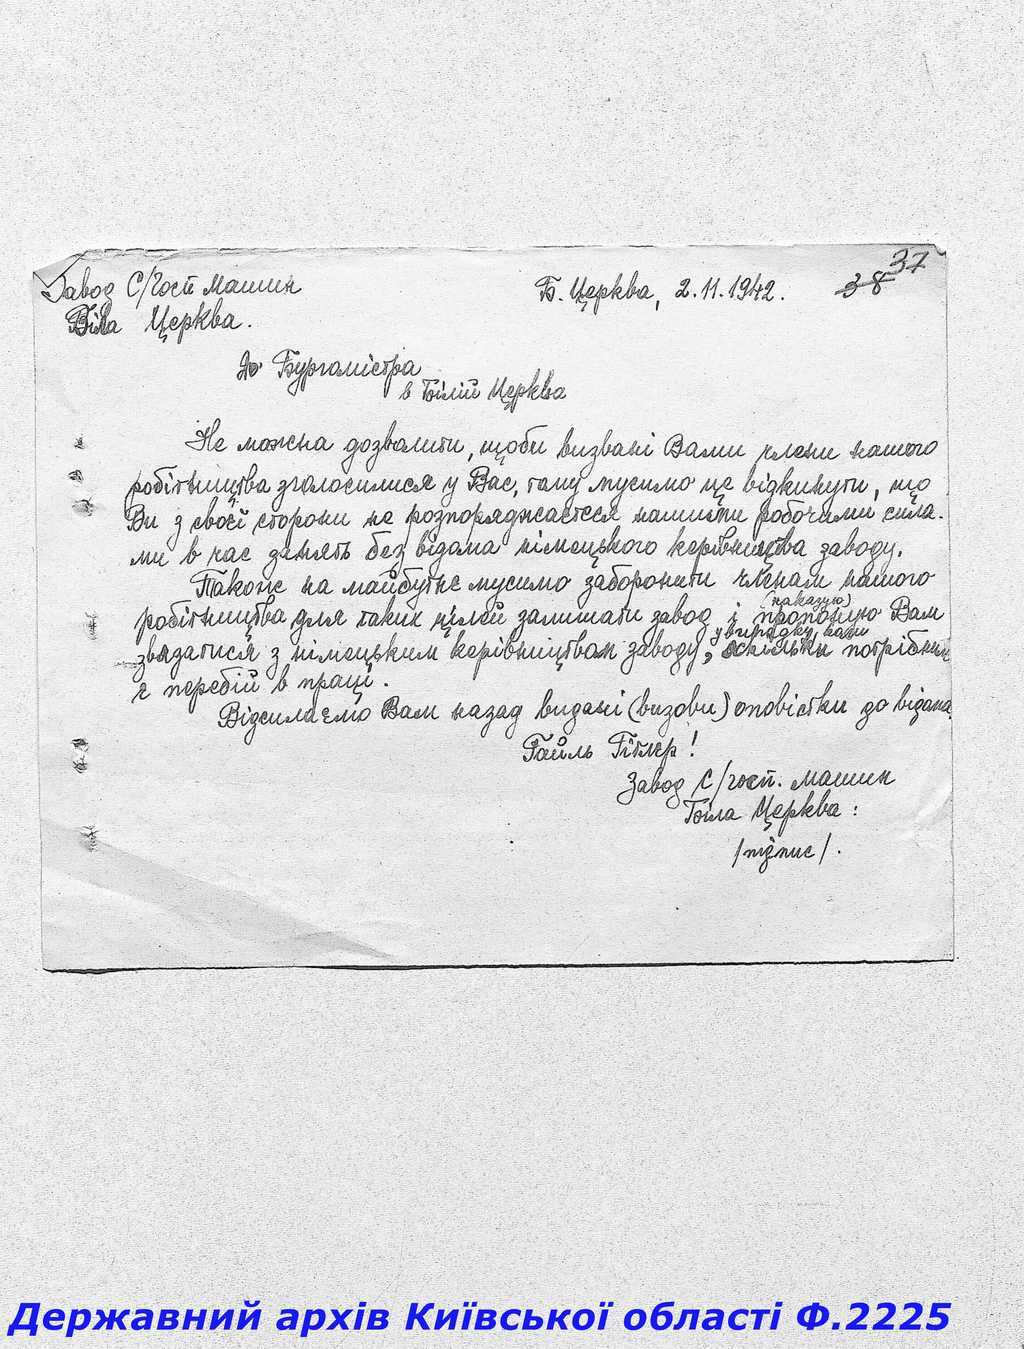 37
Завод С/Госп Машин
Б. Церква, 2.11.1942.
38
Біла Церква.
До Бургомістра
в Білій Церква
Не можна дозволити, щоби визвані Вами члени нашого
робітництва зголосилися у Вас, тому мусимо це відкинути, що
Ви з своєї сторони не розпоряджаєтеся нашими робочими сила-
ми в час занять без відома німецького керівництва заводу.
Також на майбутнє мусимо заборонити членам нашого
робітництва для таких цілей залишати завод і пропоную Вам
(наказую)
звязатися з німецьким керівництвом заводу, оскільки потрібним
у випадку, коли
є перебій в праці.
Відсилаємо Вам назад видані (визови) оповістки до відома.
Гайль Гітлер!
Завод С/госп. машин
Біла Церква:
/підпис/.
Державний архів Київської області Ф.2225